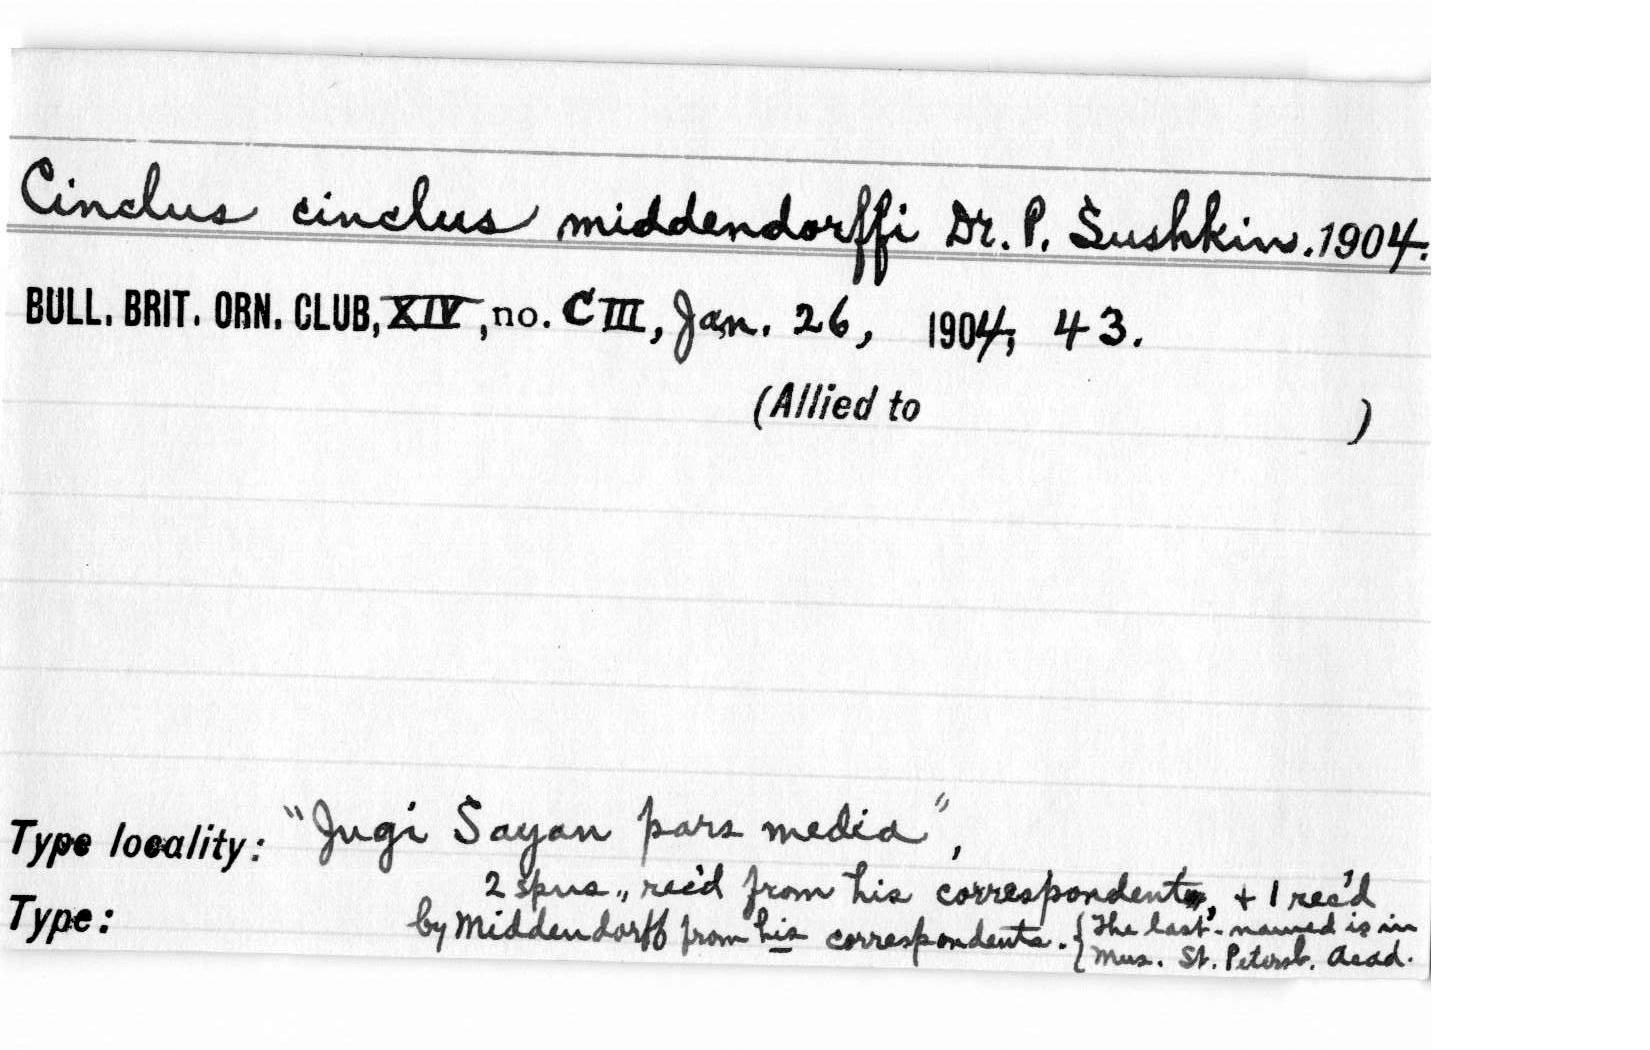 Cinclus cinclus middendorffi Dr. P. Sushkin. 1904.
BULL. BRIT. ORN. CLUB, XIV, no. CIII, Jan. 26, 1904, 43.
(Allied to )
Type locality: "Jugi Sayan pars media",
2 spns., rec'd from his correspondent, + 1 rec'd
Type: by Middendorff from his correspondents. {The last-named is in
Mus. St. Petersb. Acad.